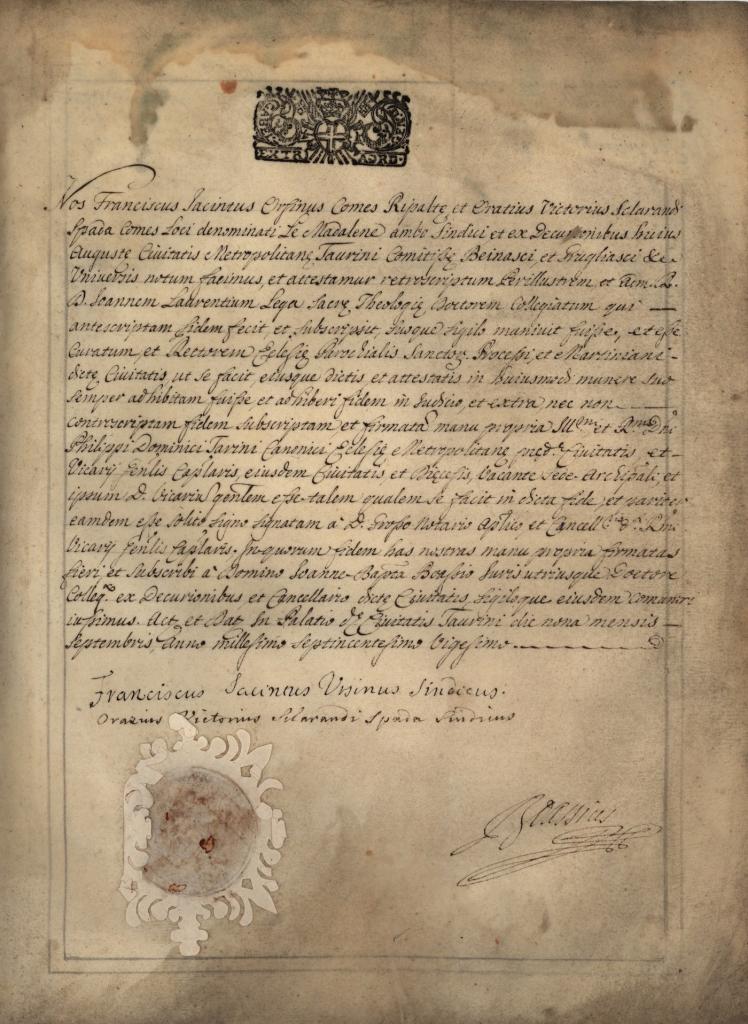 EXTRA
Nos Franciscus Iacintus Orsinus Comes Ripaltę et Oratius Victorius Sclarandi
Spada Comes Loci denominati Le Madalene ambo Sindici et ex Decurionibus huius
Augustę Civitatis Metropolitanę Taurini Comitissę Beinasci, et Grugliasci &c
Universis notum facimus, et attestamur retroscriptum Perillustrem, et Adm. R.
D. Ioannem Laurentium Lega Sacrę Theologię Doctorem Collegiatum qui
antescriptam fidem fecit, et subscripsit, suoque sigilo munivit fuisse, et esse
Curatum, et Rectorem Eclesię Parochialis Sanctor. Processi, et Martiniani
dictę Civitatis, ut se facit, eiusque dictis, et attestatis in huiusmodi munere suo
semper adhibitam fuisse et adhiberi fidem in Iudicio, et extra nec non
controscriptam fidem subscriptam et firmatã manu propria Ill.mi et R.mi Dni
Philippi Dominici Tarini Canonici Eclesię Metropolitanę pręd.ę Civitatis, et
Vicarÿ Gen̄lis Cap̄laris, eiusdem Civitatis et Dięcesis, Vacante Sede Archiep̄ali, et
ipsum D. Vicariu gen̄lem esse talem qualem se facit in dicta fide, et pariter
eamdem esse solito signo signatam à D. Grosso Notario Ap̄lico et Cancell.
Vicarÿ Gen̄lis Cap̄laris. In quorum fidem has nostras manu propria firmatas
fieri, et subscribi à Domino Ioanne Bap̄ta Boassio Iuris utriusque Doctore
Colleg. ex Decurionibus et Cancellario dictę Civitatis, sigiloque eiusdem comuniri
iussimus. Act. et Dat. In Palatio d.ę Civitatis Taurini die nona mensis
Septembris Anno millesimo septincentesimo vigesimo.
Franciscus Iacintus Ursinus Sindicus.
Orazius Victorius Sclarandi Spada Sindicus
Boassius